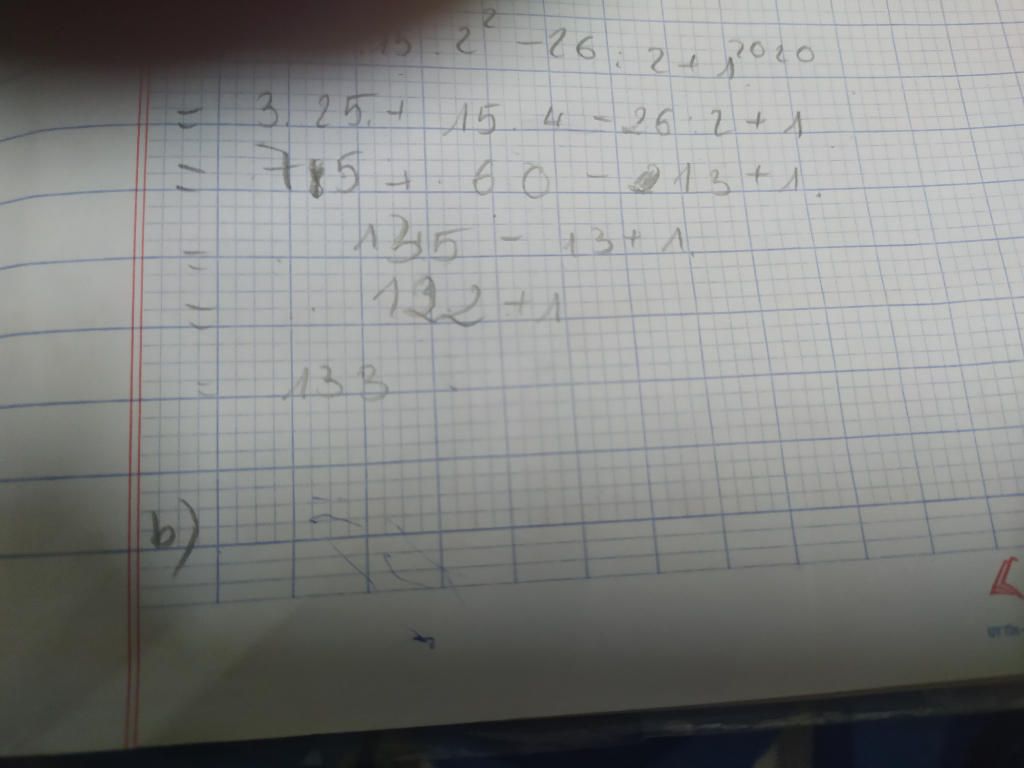 15 . 2² - 26 : 2 + 1²⁰²⁰
= 3. 25. + 15 . 4 - 26 : 2 + 1
= 75 + 60 - 13 + 1.
= 135 - 13 + 1
= 122 + 1
= 133
b)